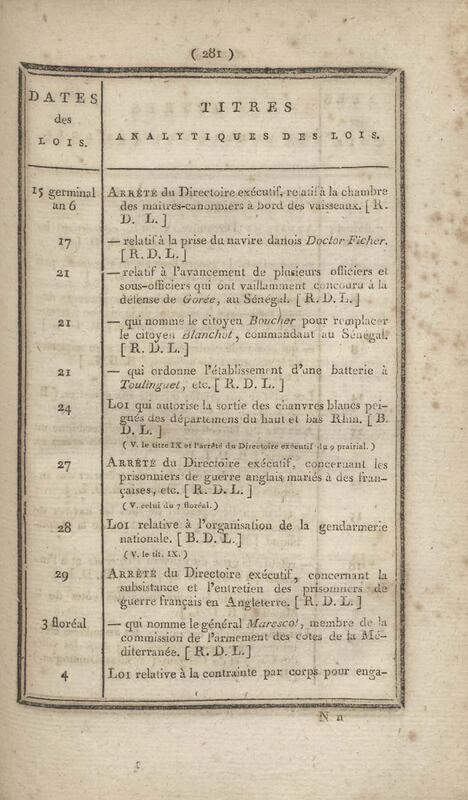 ( 281 )
DATES
des
LOIS.
TITRES
ANALYTIQUES DES LOIS.
15 germinal an 6
ARRÊTÉ du Directoire exécutif, relatif à la chambre
des maîtres-canonniers à bord des vaisseaux. [ R.
D. L. ]
17
— relatif à la prise du navire danois Doctor Ficher.
[ R. D. L. ]
21
— relatif à l'avancement de plusieurs officiers et
sous-officiers qui ont vaillamment concouru à la
défense de Gorée, au Sénégal. [ R. D. L. ]
21
— qui nomme le citoyen Boucher pour remplacer
le citoyen Blanchot, commandant au Sénégal.
[ R. D. L. ]
21
— qui ordonne l'établissement d'une batterie à
Toulinguet, etc. [ R. D. L. ]
24
LOI qui autorise la sortie des chanvres blancs pei-
gnés des départemens du haut et bas Rhin. [ B.
D. L. ]
( V. le titre IX et l'arrêté du Directoire exécutif du 9 prairial. )
27
ARRÊTÉ du Directoire exécutif, concernant les
prisonniers de guerre anglais mariés à des fran-
çaises, etc. [ R. D. L. ]
( V. celui du 7 floréal. )
28
LOI relative à l'organisation de la gendarmerie
nationale. [ B. D. L. ]
( V. le tit. IX. )
29
ARRÊTÉ du Directoire exécutif, concernant la
subsistance et l'entretien des prisonniers de
guerre français en Angleterre. [ R. D. L. ]
3 floréal
— qui nomme le général Marescot, membre de la
commission de l'armement des côtes de la Mé-
diterranée. [ R. D. L. ]
4
LOI relative à la contrainte par corps pour enga-
N n